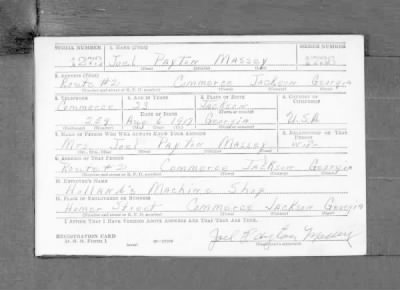 SERIAL NUMBER 1. NAME (Print) ORDER NUMBER
Joel Payton Massey
(First) (Middle) (Last)
2. ADDRESS (Print)
Route #2. Commerce Jackson Georgia
(Number and street or R. F. D. number) (Town) (County) (State)
3. TELEPHONE 4. AGE IN YEARS 5. PLACE OF BIRTH 6. COUNTRY OF CITIZENSHIP
Commerce 23 Jackson
DATE OF BIRTH (Town or county)
Aug 6 1917 Georgia U.S.A
7. NAME OF PERSON WHO WILL ALWAYS KNOW YOUR ADDRESS 8. RELATIONSHIP OF THAT PERSON
Mrs. Joel Payton Massey Wife
(Mr., Mrs., Miss) (First) (Middle) (Last)
9. ADDRESS OF THAT PERSON
Route # 2. Commerce Jackson Georgia
(Number and street or R. F. D. number) (Town) (County) (State)
10. EMPLOYER'S NAME
Holland's Machine Shop
11. PLACE OF EMPLOYMENT OR BUSINESS
Homer Street Commerce Jackson Georgia
(Number and street or R. F. D. number) (Town) (County) (State)
I AFFIRM THAT I HAVE VERIFIED ABOVE ANSWERS AND THAT THEY ARE TRUE.
REGISTRATION CARD
D. S. S. FORM 1 Joel Payton Massey